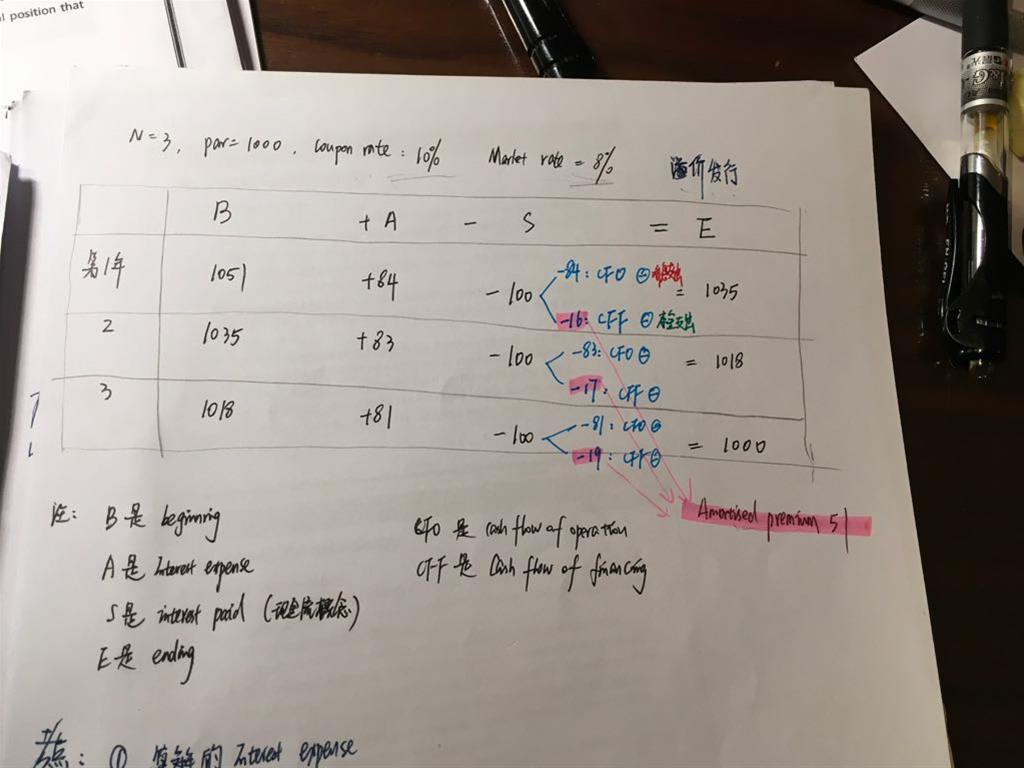 l position that
N=3, par=1000. Coupon rate: 10% Market rate = 8% 溢价发行
B +A - S = E
第1年 1051 +84 -100 -84: CFO ⊖ = 1035
-16: CFF ⊖
2 1035 +83 -100 -83: CFO ⊖ = 1018
-17: CFF ⊖
3 1018 +81 -100 -81: CFO ⊖ = 1000
-19: CFF ⊖
Amortised premium 51
注: B是 beginning CFO 是 cash flow of operation
A是 Interest expense CFF 是 Cash flow of financing
S是 interest paid (现金流概念)
E是 ending
考点: ① 算 的 Interest expense